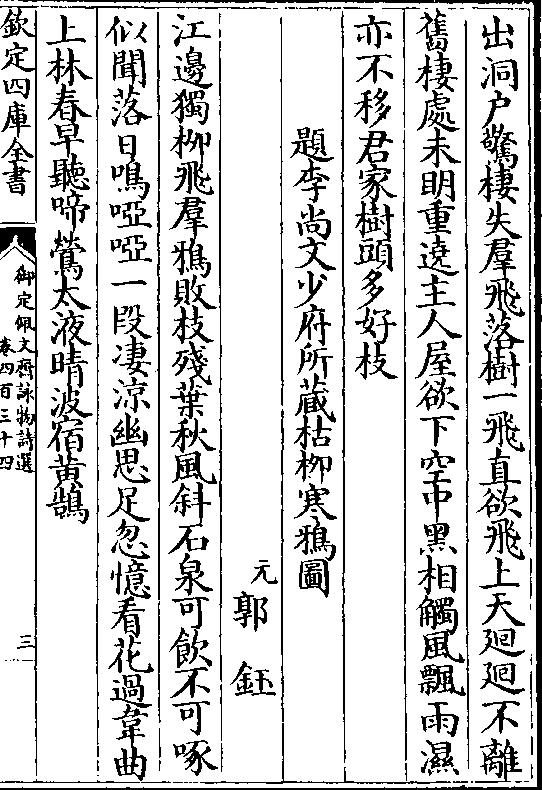 出洞戸驚棲失羣飛落樹一飛直欲飛上天迴迴不離
舊棲處未明重遶主人屋欲下空中黑相觸風飄雨濕
亦不移君家樹頭多好枝
題李尚文少府所藏枯柳寒鴉圖
元郭鈺
江邊獨柳飛羣鴉敗枝殘葉秋風斜石泉可飲不可啄
似聞落日鳴啞啞一段凄涼幽思足忽憶看花過韋曲
上林春早聽啼鶯太液晴波宿黃鵠
欽定四庫全書
御定佩文齋詠物詩選
卷四百三十四
三